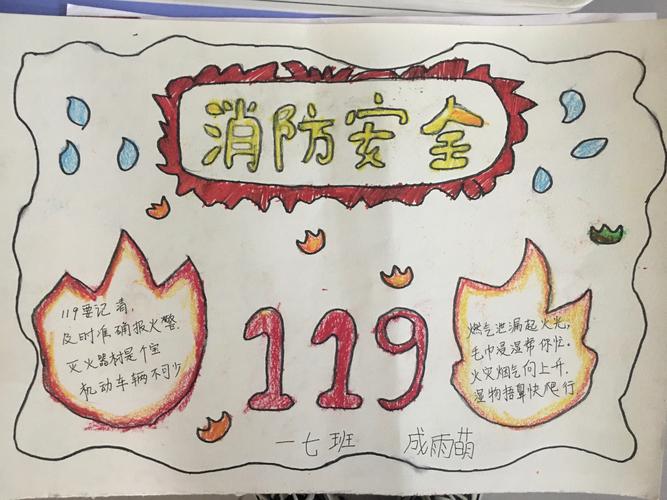 消防安全
119要记清,
及时准确报火警.
灭火器材是个宝
机动车辆不可少
119
燃气泄漏起火光,
毛巾浸湿帮你忙.
火灾烟气向上升.
湿物捂鼻快爬行
一七班 成雨萌